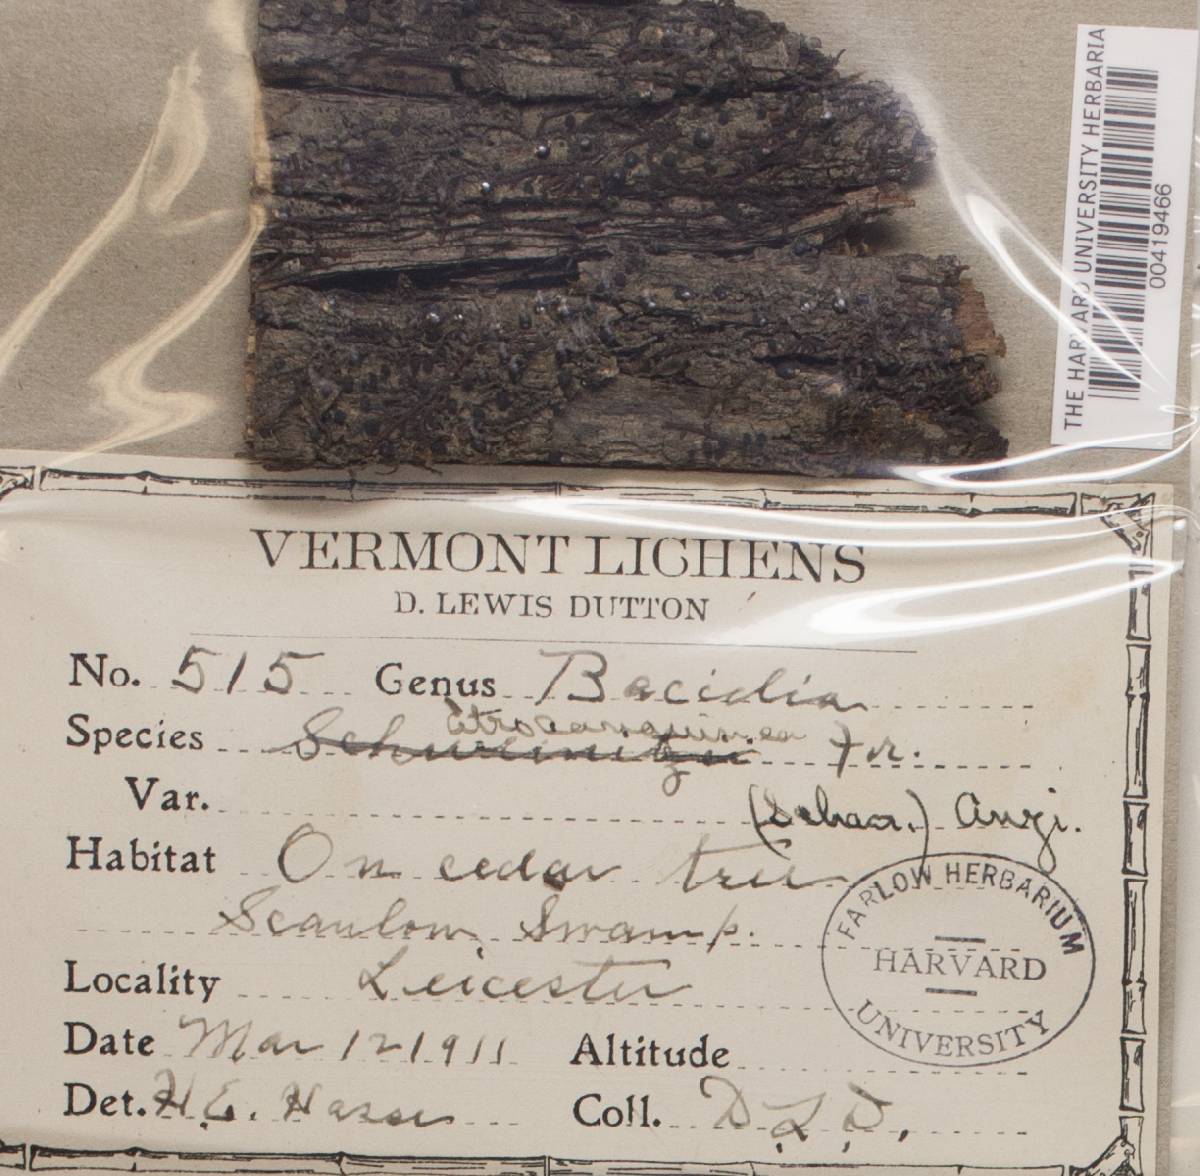 THE HARVARD UNIVERSITY HERBARIA
00419466
VERMONT LICHENS
D. LEWIS DUTTON
No. 515 Genus Bacidia
atrosanguinea
Species Schweinitzii Fr.
Var. (Schaer.) Anzi.
Habitat On cedar tree
Scanlon Swamp.
Locality Leicester
Date Mar 12 1911 Altitude
Det. H.E. Hasse Coll. D.L.D.
FARLOW HERBARIUM
HARVARD
UNIVERSITY